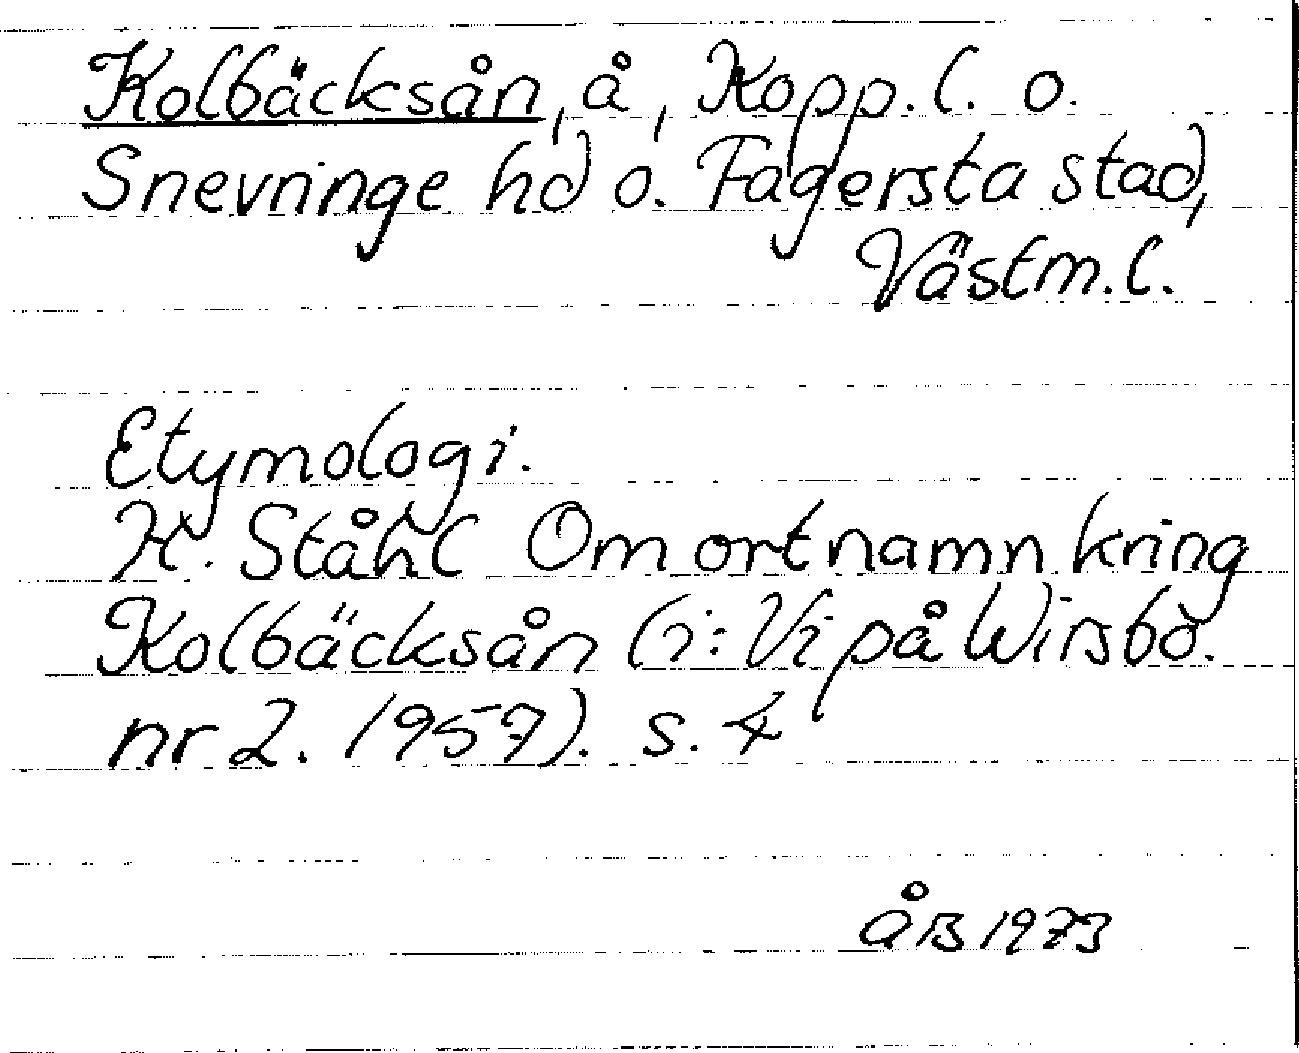 Kolbäcksån, å, Kopp.l. o.
Snevringe hd o. Fagersta stad,
Västm.l.
Etymologi.
H. Ståhl Om ortnamn kring
Kolbäcksån (i: Vi på Wirsbo.
nr 2. 1957). s. 4
ÅB 1973